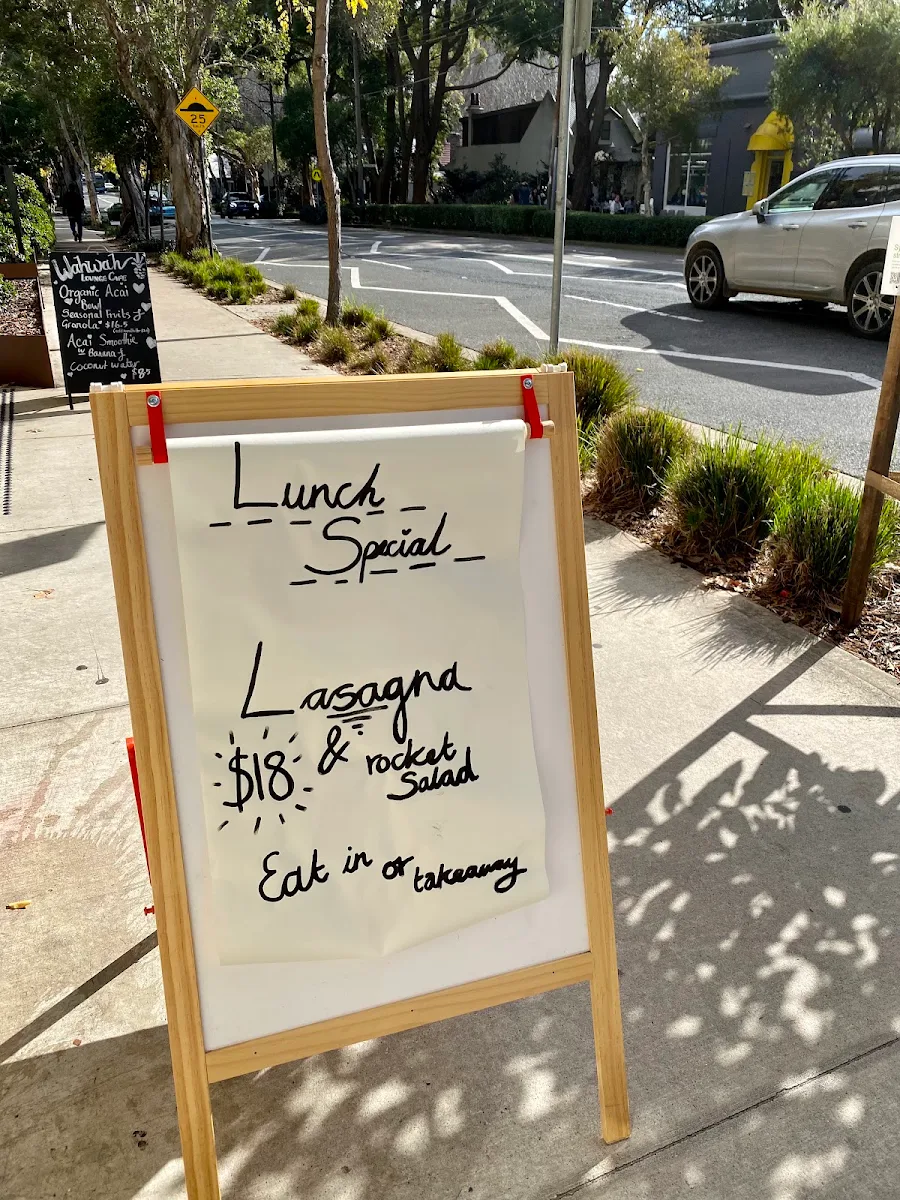 25
Wahwah
Lounge Cafe
Organic Acai
Bowl
Seasonal Fruits &
Granola $16.5
Acai Smoothie
w Banana &
Coconut water
$8.5
Lunch
Special
Lasagna
$18 & rocket
Salad
Eat in or takeaway